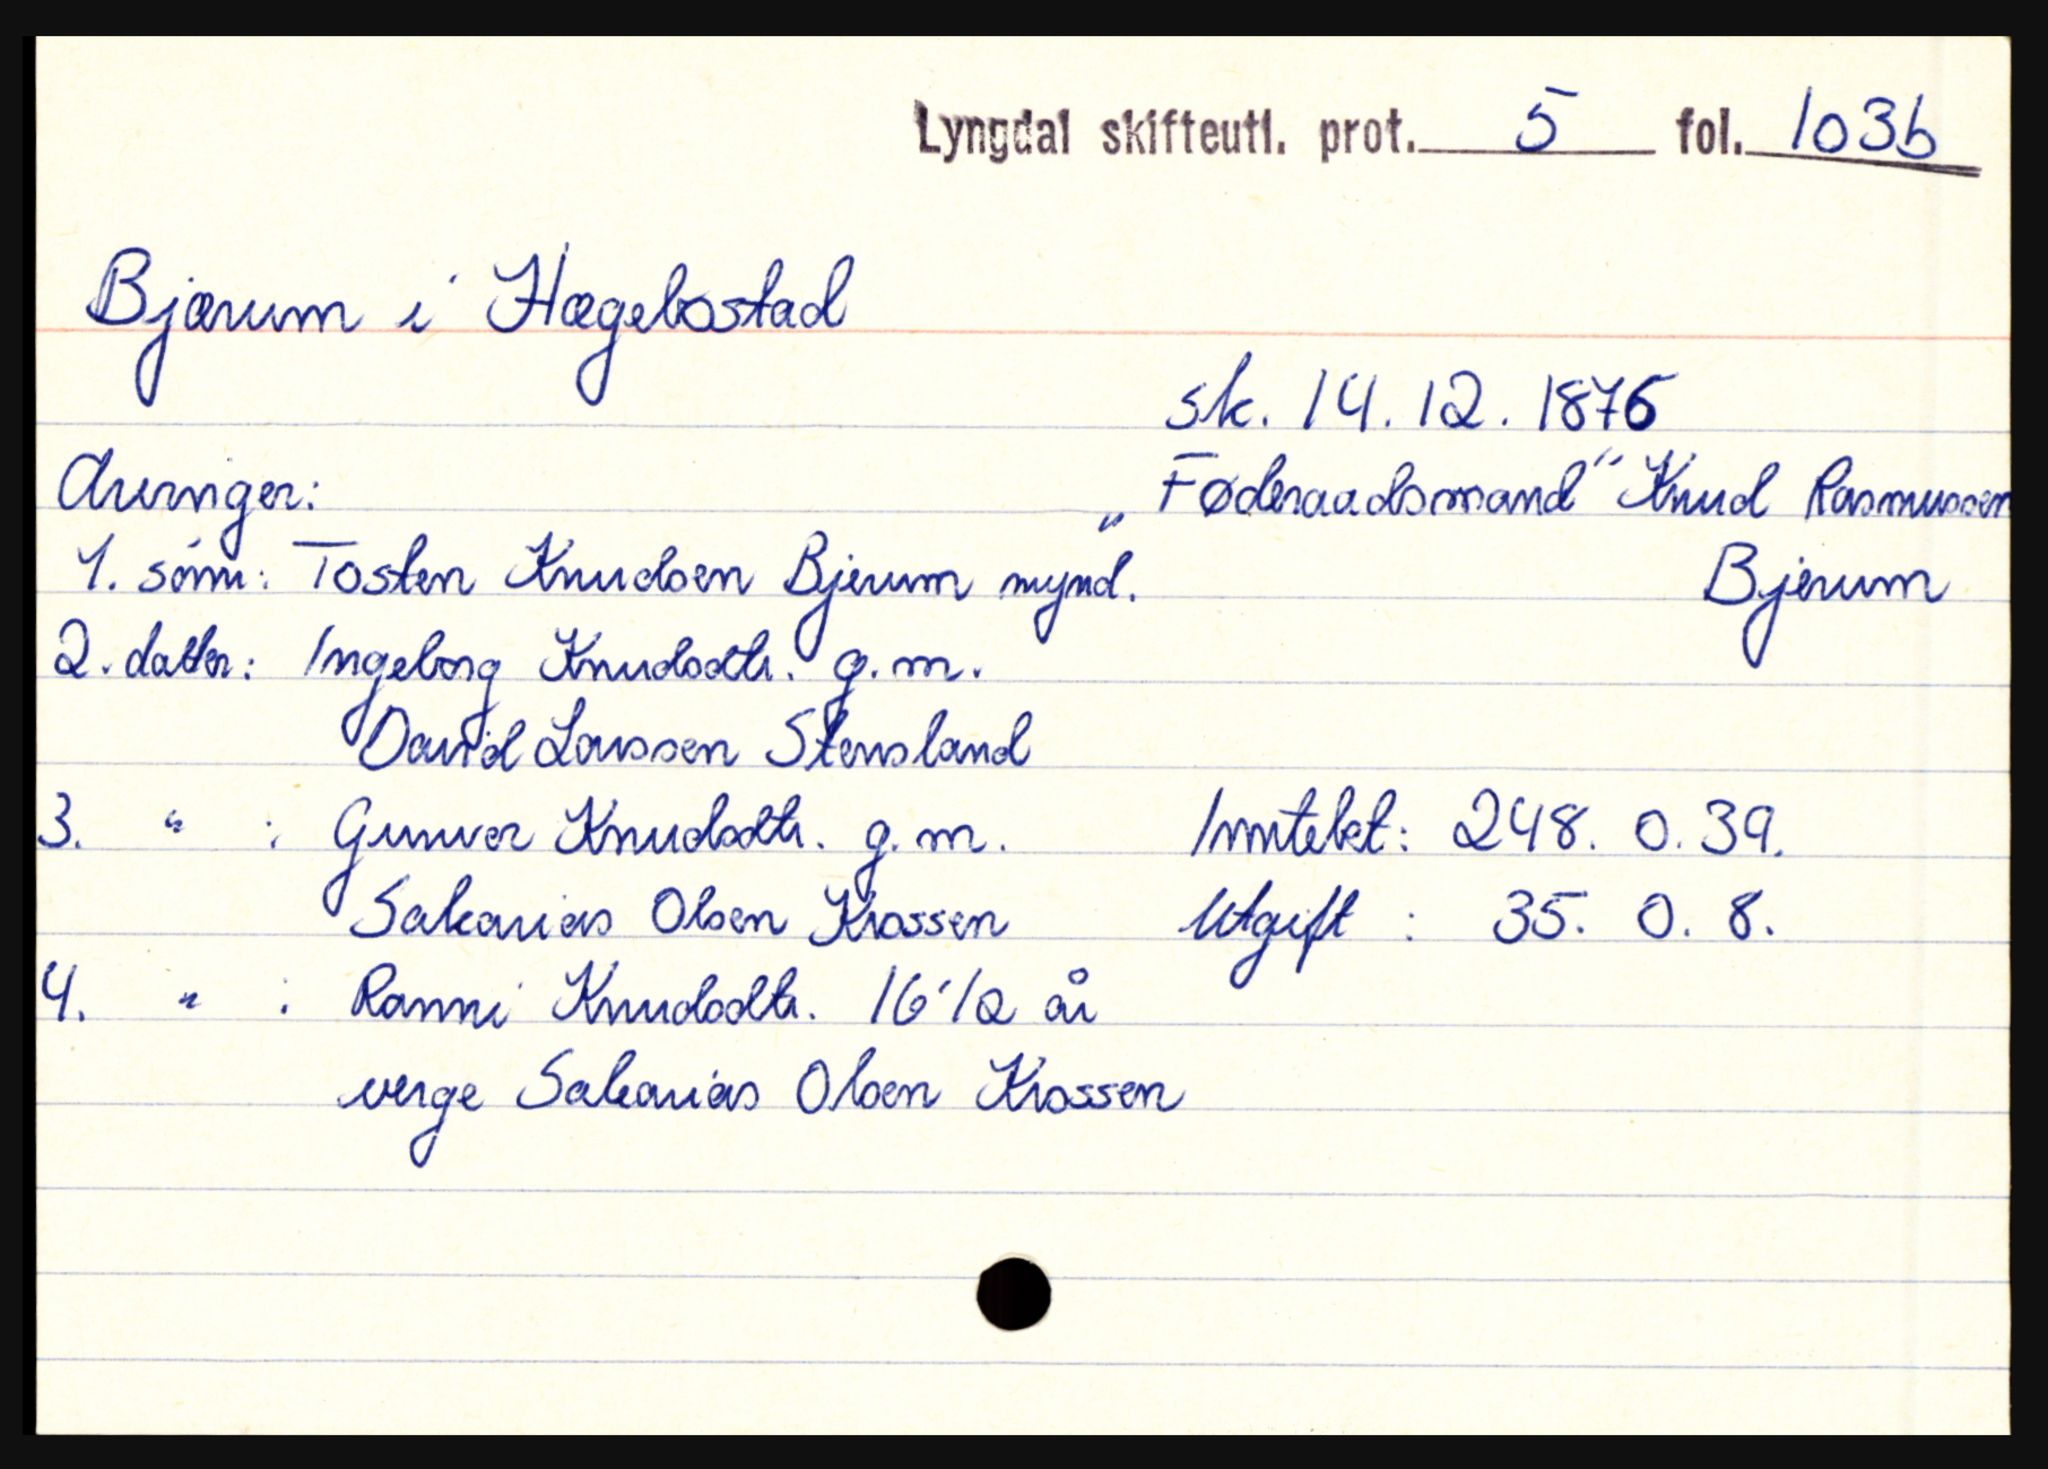 Lyngdal skifteutl. prot. 5 fol. 103b
Bjærum i Hægebostad
sk. 14.12.1876
Arvinger:
„Føderaadsmand“ Knud Rasmussen
Bjerum
1. sønn: Tosten Knudsen Bjerum mynd.
2. datter: Ingeborg Knudsdtr. g.m.
David Larssen Stensland
3. " : Gunver Knudsdtr. g.m.
Sakarias Olsen Krossen
4. " : Ranni Knudsdtr. 16 1/2 år
verge Sakarias Olsen Krossen
Inntekt: 248. 0. 39.
Utgift : 35. 0. 8.